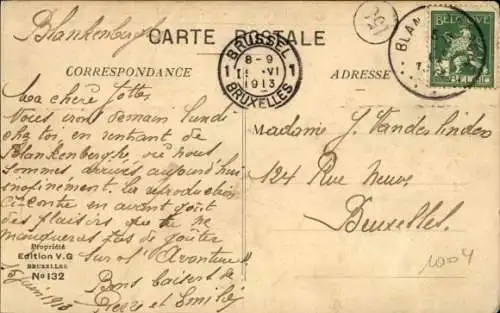 Blankenberghe
CARTE POSTALE
CORRESPONDANCE
ADRESSE
BRUSSEL
8-9
VI
1 1
1913
BRUXELLES
BLAN
BELGIQUE
BELGIË
Ma chère
Nous irons demain lundi
chez toi en rentrant de
Blankenberghe où nous
sommes arrivés aujourd'hui
inopinément. La reproduction
ci-contre en avant goût
des plaisirs que tu ne
manqueras pas de goûter
sur "l'Aventure".
Bons baisers de
et Emilie
Propriété
Edition V.G
BRUXELLES
No 132
15 juin 1913
Madame J. Vanderlinden
124 Rue Neuve
Bruxelles.
1004